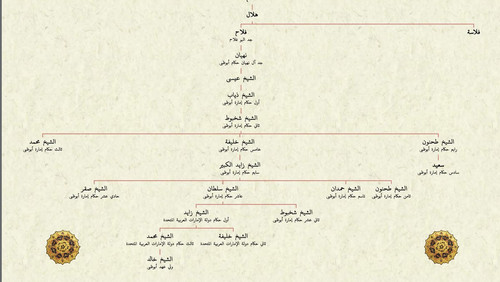 هلال
فلاح
جد البو فلاح
فلاسة
نهيان
جد آل نهيان حكام أبوظبي
الشيخ عيسى
الشيخ ذياب
أول حكام إمارة أبوظبي
الشيخ شخبوط
ثاني حكام إمارة أبوظبي
الشيخ طحنون
رابع حكام إمارة أبوظبي
الشيخ خليفة
خامس حكام إمارة أبوظبي
الشيخ محمد
ثالث حكام إمارة أبوظبي
سعيد
سادس حكام إمارة أبوظبي
الشيخ زايد الكبير
سابع حكام إمارة أبوظبي
الشيخ طحنون
ثامن حكام إمارة أبوظبي
الشيخ حمدان
تاسع حكام إمارة أبوظبي
الشيخ سلطان
عاشر حكام إمارة أبوظبي
الشيخ صقر
حادي عشر حكام إمارة أبوظبي
الشيخ شخبوط
ثاني عشر حكام إمارة أبوظبي
الشيخ زايد
أول حكام دولة الإمارات العربية المتحدة
الشيخ خليفة
ثاني حكام دولة الإمارات العربية المتحدة
الشيخ محمد
ثالث حكام دولة الإمارات العربية المتحدة
الشيخ خالد
ولي عهد أبوظبي